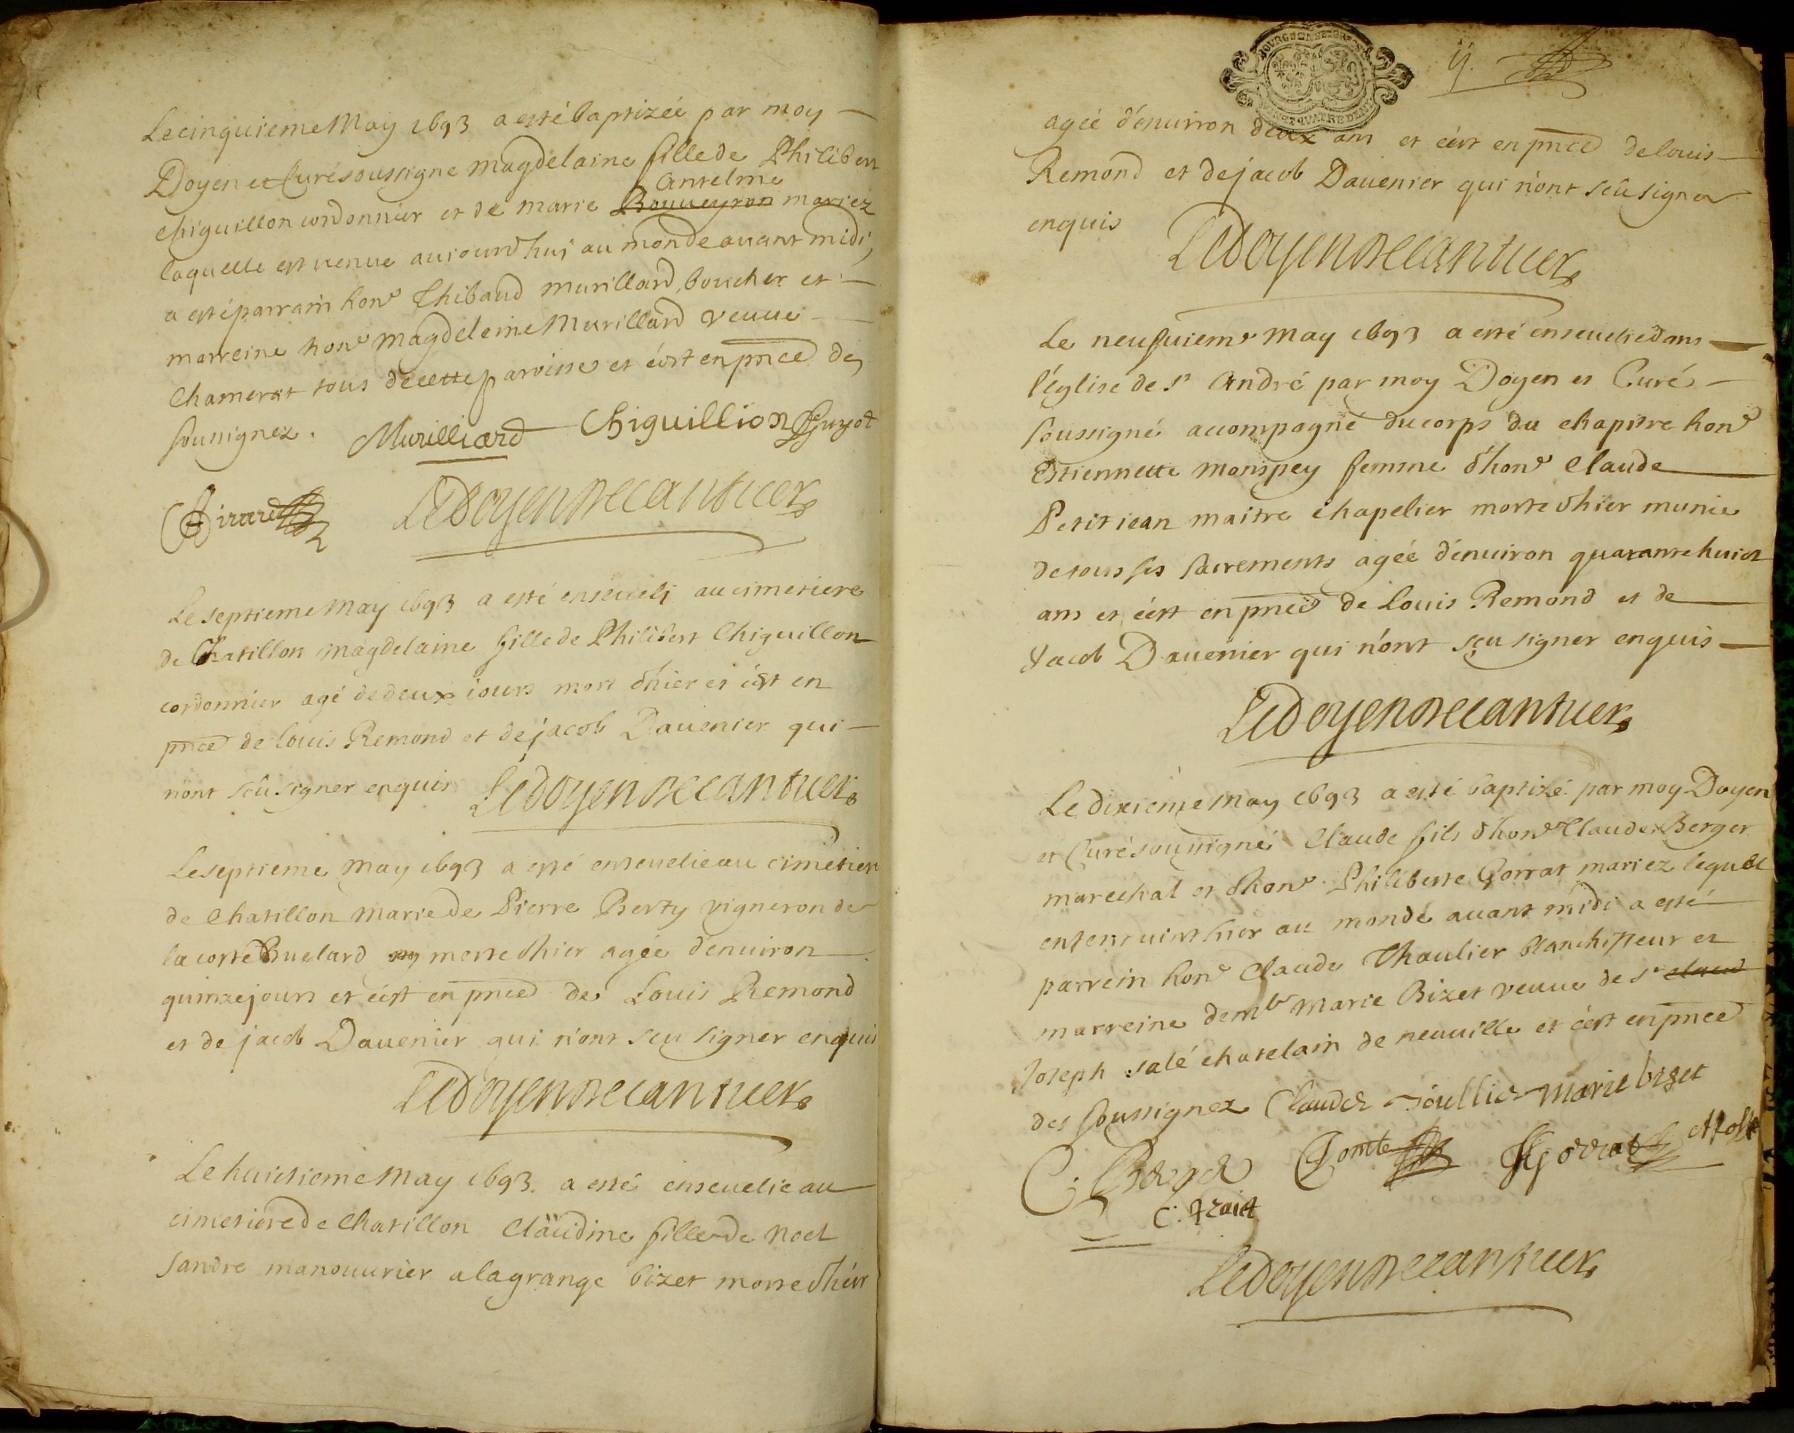 Le cinquieme May 1693 a esté baptizéé par moy
Doyen et Curé soussigne magdelaine fille de Philibert
Chiguillon cordonnier et de marie Bouueyron mariez
Antelme
laquelle est venue aujourd'huj au monde auant midi,
a esté parrain hon^e Thibaud murillard, boucher et
marreine hon^e magdeleine Murillard veuue
Chamerat tous de cette parroisse et c'est en pnce des
soussignez. Murilliard Chiguillion Guyot
Girard Le doyen
Le septieme May 1693 a esté enseueli au cimetiere
de Chatillon magdelaine fille de Philibert Chiguillon
cordonnier agé de deux iours mort d'hier et c'est en
pnce de louis Remond et de jacob Dauenier qui
n'ont sceu signer enquis Le doyen
Le septieme May 1693 a esté enseuelie au cimetiere
de Chatillon marie de Pierre Berty vigneron de
la coste Buelard morte d'hier agée d'enuiron
quinze jours et c'est en pnce de Louis Remond
et de jacob Dauenier qui n'ont sceu signer enquis
Le doyen
Le huictieme May 1693. a esté enseuelie au
cimetiere de Chatillon Claudine fille de Noel
Sandre manouurier a la grange bizet morte d'hier
ij.
agéé d'enuiron deux ans et c'est en pnce de louis
Remond et de jacob Dauenier qui n'ont sceu signer
enquis Le doyen
Le neufuieme May 1693 a esté enseuelie dans
l'église de S^t André par moy Doyen et Curé
soussigné accompagné du corps du chapitre hon^e
Estiennette monspey femme d'hon^e Claude
Petitiean maitre chapelier morte d'hier munie
de tous ses sacrements agéé d'enuiron quarante huict
ans et c'est en pnce de Louis Remond et de
Jacob Dauenier qui n'ont sceu signer enquis
Le doyen
Le dixieme May 1693 a esté baptizé par moy Doyen
et Curé soussigné Claude fils d'hon^e Claude Berger
marechal et d'hon^e Philiberte Gorrat mariez lequel
enfent vint hier au monde auant midi a esté
parrein hon^e Claude Thoulier blanchisseur et
marreine dem^lle Marie Bizet veuue de s^r claud
Joseph salé chatelain de neuuille et c'est en pnce
des soussignez Claude Toullier marie bizet
C. Berger Comte Gorrat
Le doyen